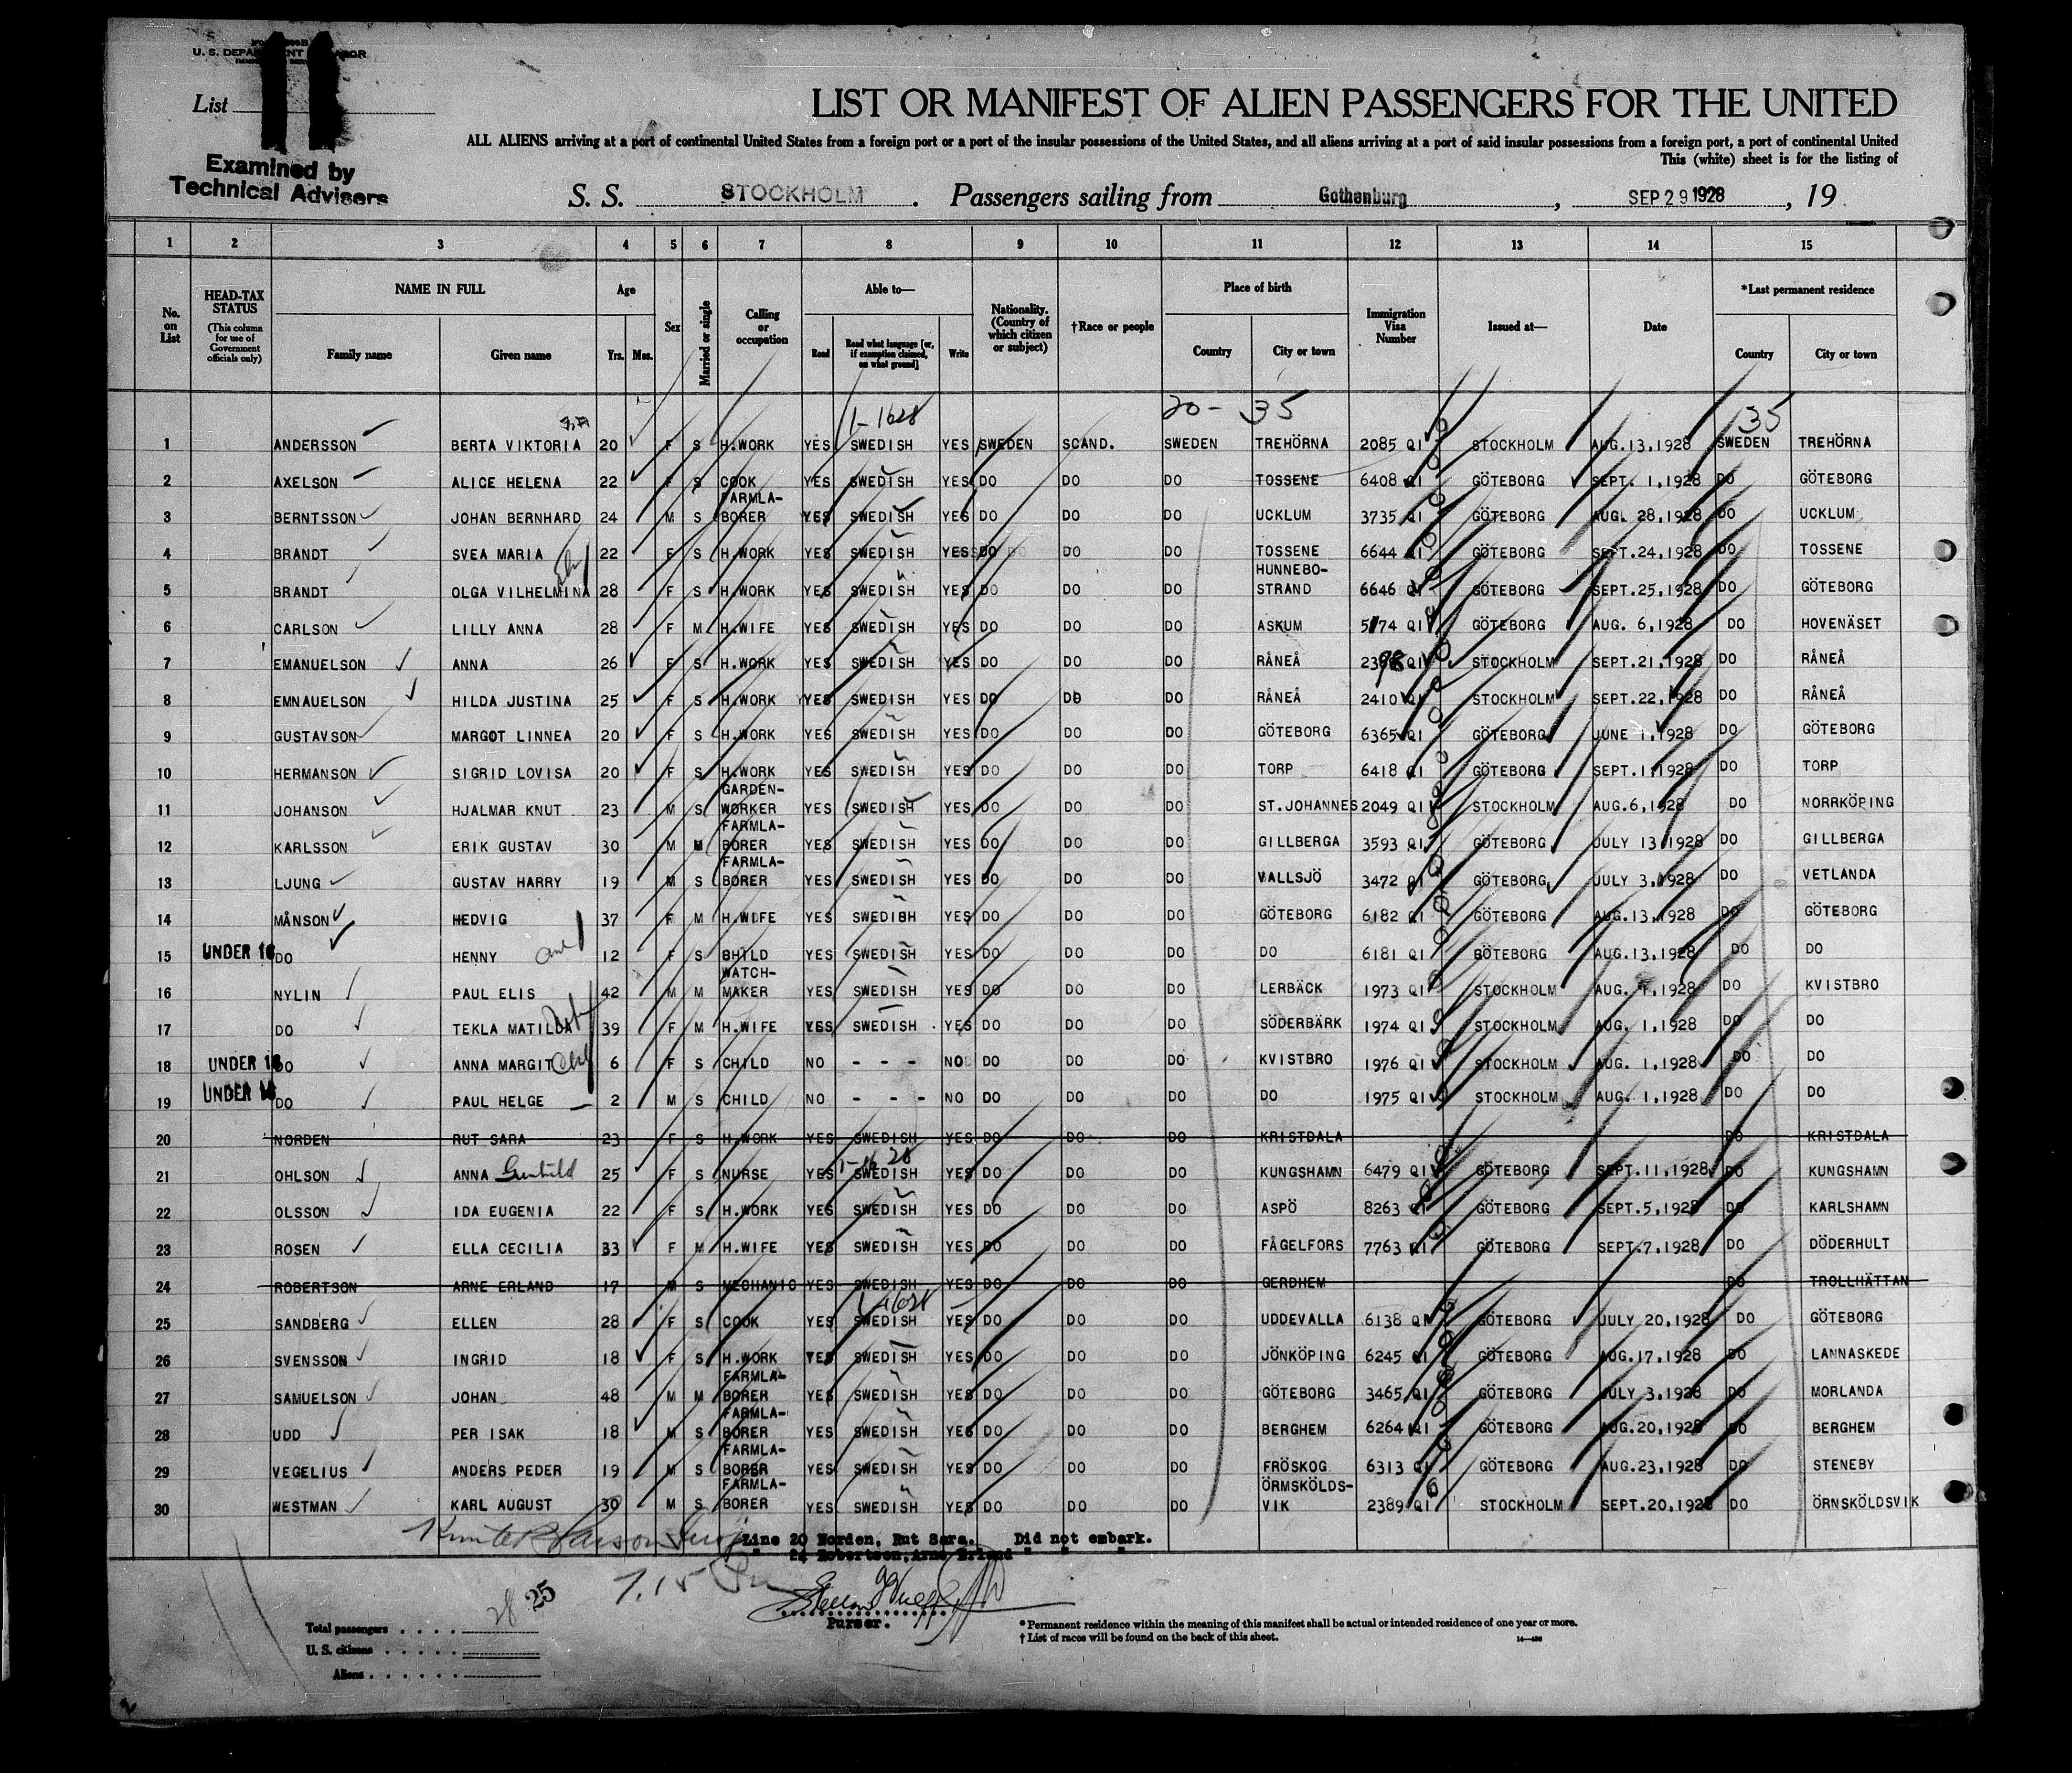 U. S. DEPARTMENT OF LABOR
List 11
LIST OR MANIFEST OF ALIEN PASSENGERS FOR THE UNITED
ALL ALIENS arriving at a port of continental United States from a foreign port or a port of the insular possessions of the United States, and all aliens arriving at a port of said insular possessions from a foreign port, a port of continental United
This (white) sheet is for the listing of
Examined by
Technical Advisers
S. S. STOCKHOLM. Passengers sailing from Gothenburg, SEP 29 1928, 19
1 2 3 4 5 6 7 8 9 10 11 12 13 14 15
No. on List
HEAD-TAX STATUS (This column for use of Government officials only)
NAME IN FULL
Family name Given name
Age
Yrs. Mos.
Sex
Married or single
Calling or occupation
Able to—
Read Read what language [or, if exemption claimed, on what ground] Write
Nationality. (Country of which citizen or subject)
†Race or people
Place of birth
Country City or town
Immigration Visa Number
Issued at—
Date
*Last permanent residence
Country City or town
1-1628 20- 35 35
1 ANDERSSON BERTA VIKTORIA 20 F S H.WORK YES SWEDISH YES SWEDEN SCAND. SWEDEN TREHÖRNA 2085 QI STOCKHOLM AUG.13,1928 SWEDEN TREHÖRNA
2 AXELSON ALICE HELENA 22 F S COOK YES SWEDISH YES DO DO DO TOSSENE 6408 QI GÖTEBORG SEPT. 1,1928 DO GÖTEBORG
3 BERNTSSON JOHAN BERNHARD 24 M S FARMLA-BORER YES SWEDISH YES DO DO DO UCKLUM 3735 QI GÖTEBORG AUG. 28,1928 DO UCKLUM
4 BRANDT SVEA MARIA 22 F S H.WORK YES SWEDISH YES DO DO DO TOSSENE 6644 QI GÖTEBORG SEPT.24,1928 DO TOSSENE
5 BRANDT OLGA VILHELMINA 28 F S H.WORK YES SWEDISH YES DO DO DO HUNNEBO-STRAND 6646 QI GÖTEBORG SEPT.25,1928 DO GÖTEBORG
6 CARLSON LILLY ANNA 28 F M H.WIFE YES SWEDISH YES DO DO DO ASKUM 5174 QI GÖTEBORG AUG. 6,1928 DO HOVENÄSET
7 EMANUELSON ANNA 26 F S H.WORK YES SWEDISH YES DO DO DO RÅNEÅ 2398 QI STOCKHOLM SEPT.21,1928 DO RÅNEÅ
8 EMNAUELSON HILDA JUSTINA 25 F S H.WORK YES SWEDISH YES DO DO DO RÅNEÅ 2410 QI STOCKHOLM SEPT.22,1928 DO RÅNEÅ
9 GUSTAVSON MARGOT LINNEA 20 F S H.WORK YES SWEDISH YES DO DO DO GÖTEBORG 6365 QI GÖTEBORG JUNE 1,1928 DO GÖTEBORG
10 HERMANSON SIGRID LOVISA 20 F S H.WORK YES SWEDISH YES DO DO DO TORP 6418 QI GÖTEBORG SEPT.1,1928 DO TORP
11 JOHANSON HJALMAR KNUT 23 M S GARDEN-WORKER YES SWEDISH YES DO DO DO ST.JOHANNES 2049 QI STOCKHOLM AUG.6,1928 DO NORRKÖPING
12 KARLSSON ERIK GUSTAV 30 M M FARMLA-BORER YES SWEDISH YES DO DO DO GILLBERGA 3593 QI GÖTEBORG JULY 13,1928 DO GILLBERGA
13 LJUNG GUSTAV HARRY 19 M S FARMLA-BORER YES SWEDISH YES DO DO DO VALLSJÖ 3472 QI GÖTEBORG JULY 3,1928 DO VETLANDA
14 MÅNSON HEDVIG 37 F M H.WIFE YES SWEDISH YES DO DO DO GÖTEBORG 6182 QI GÖTEBORG AUG.13,1928 DO GÖTEBORG
15 UNDER 16 DO HENNY 12 F S BHILD YES SWEDISH YES DO DO DO DO 6181 QI GÖTEBORG AUG.13,1928 DO DO
16 NYLIN PAUL ELIS 42 M M WATCH-MAKER YES SWEDISH YES DO DO DO LERBÄCK 1973 QI STOCKHOLM AUG. 1,1928 DO KVISTBRO
17 DO TEKLA MATILDA 39 F M H.WIFE YES SWEDISH YES DO DO DO SÖDERBÄRK 1974 QI STOCKHOLM AUG. 1,1928 DO DO
18 UNDER 16 DO ANNA MARGIT 6 F S CHILD NO - - - NO DO DO DO KVISTBRO 1976 QI STOCKHOLM AUG. 1,1928 DO DO
19 UNDER 16 DO PAUL HELGE 2 M S CHILD NO - - - NO DO DO DO DO 1975 QI STOCKHOLM AUG. 1,1928 DO DO
20 NORDEN RUT SARA 23 F S H.WORK YES SWEDISH YES DO DO DO KRISTDALA DO KRISTDALA
21 OHLSON ANNA Gunhild 25 F S NURSE YES SWEDISH YES DO DO DO KUNGSHAMN 6479 QI GÖTEBORG SEPT.11,1928 DO KUNGSHAMN
22 OLSSON IDA EUGENIA 22 F S H.WORK YES SWEDISH YES DO DO DO ASPÖ 8263 QI GÖTEBORG SEPT.5,1928 DO KARLSHAMN
23 ROSEN ELLA CECILIA 33 F M H.WIFE YES SWEDISH YES DO DO DO FÅGELFORS 7763 QI GÖTEBORG SEPT.7,1928 DO DÖDERHULT
24 ROBERTSON ARNE ERLAND 17 M S MECHANIC YES SWEDISH YES DO DO DO GERDHEM DO TROLLHÄTTAN
25 SANDBERG ELLEN 28 F S COOK YES SWEDISH YES DO DO DO UDDEVALLA 6138 QI GÖTEBORG JULY 20,1928 DO GÖTEBORG
26 SVENSSON INGRID 18 F S H.WORK YES SWEDISH YES DO DO DO JÖNKÖPING 6245 QI GÖTEBORG AUG.17,1928 DO LANNASKEDE
27 SAMUELSON JOHAN 48 M M FARMLA-BORER YES SWEDISH YES DO DO DO GÖTEBORG 3465 QI GÖTEBORG JULY 3,1928 DO MORLANDA
28 UDD PER ISAK 18 M S FARMLA-BORER YES SWEDISH YES DO DO DO BERGHEM 6264 QI GÖTEBORG AUG.20,1928 DO BERGHEM
29 VEGELIUS ANDERS PEDER 19 M S FARMLA-BORER YES SWEDISH YES DO DO DO FRÖSKOG 6313 QI GÖTEBORG AUG.23,1928 DO STENEBY
30 WESTMAN KARL AUGUST 30 M S FARMLA-BORER YES SWEDISH YES DO DO DO ÖRMSKÖLDS-VIK 2389 QI STOCKHOLM SEPT.20,1928 DO ÖRNSKÖLDSVIK
Line 20 Norden, Rut Sara. Did not embark.
" 24 Robertson, Arne Erland " " "
7.15
28 25
Purser.
Total passengers
U. S. citizens
Aliens
* Permanent residence within the meaning of this manifest shall be actual or intended residence of one year or more.
† List of races will be found on the back of this sheet.